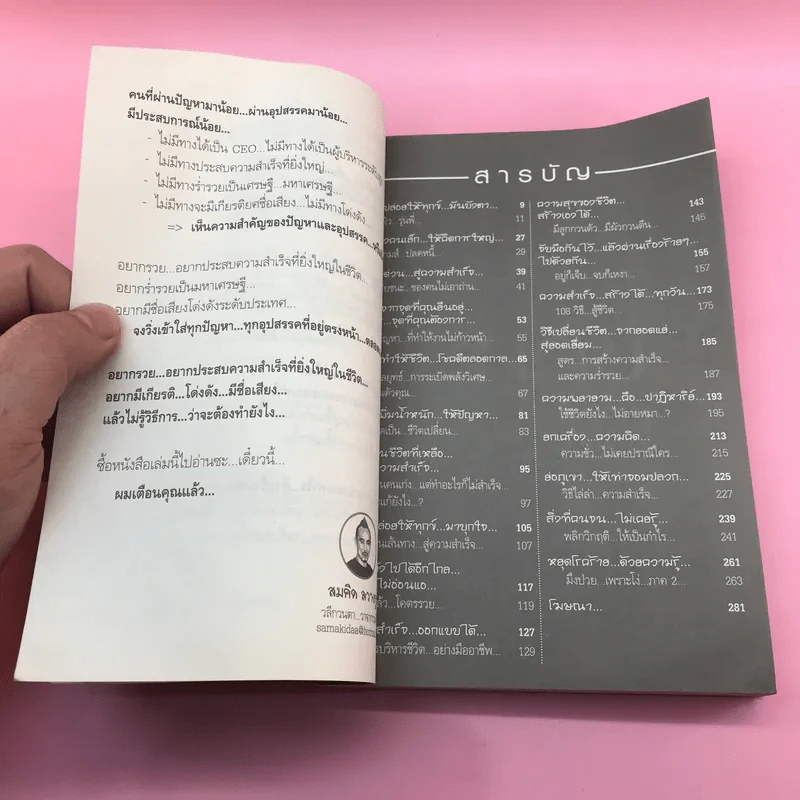 คนที่ผ่านปัญหามาน้อย...ผ่านอุปสรรคมาน้อย...
มีประสบการณ์น้อย...
- ไม่มีทางได้เป็น CEO...ไม่มีทางได้เป็นผู้บริหารระดับ
- ไม่มีทางประสบความสำเร็จที่ยิ่งใหญ่...
- ไม่มีทางร่ำรวยเป็นเศรษฐี...มหาเศรษฐี...
- ไม่มีทางจะมีเกียรติยศชื่อเสียง...ไม่มีทางโด่งดัง...
=> เห็นความสำคัญของปัญหาและอุปสรรค...
อยากรวย...อยากประสบความสำเร็จที่ยิ่งใหญ่ในชีวิต...
อยากร่ำรวยเป็นมหาเศรษฐี...
อยากมีชื่อเสียงโด่งดังระดับประเทศ...
จงวิ่งเข้าใส่ทุกปัญหา...ทุกอุปสรรคที่อยู่ตรงหน้า...
อยากรวย...อยากประสบความสำเร็จที่ยิ่งใหญ่ในชีวิต...
อยากมีเกียรติ...โด่งดัง...มีชื่อเสียง...
แล้วไม่รู้วิธีการ...ว่าจะต้องทำยังไง...
ซื้อหนังสือเล่มนี้ไปอ่านซะ...เดี๋ยวนี้...
ผมเตือนคุณแล้ว...
สมคิด
สารบัญ
ให้ทุกข์...มันบังตา... 9
รุ่นพี่... 11
คนเล็ก...ให้คิดการใหญ่... 27
ปลดหนี้... 29
ด่วน...สู่ความสำเร็จ... 39
ของคนไม่เอาถ่าน... 41
จากจุดที่คุณยืนอยู่...
จุดที่คุณต้องการ... 53
ที่ทำให้งานไม่ก้าวหน้า... 55
ทำให้ชีวิต...โชคดีตลอดกาล... 65
การระเบิดพลังวิเศษ...
ตัวคุณ... 67
น้ำหนัก...ให้ปัญหา... 81
เป็น...ชีวิตเปลี่ยน... 83
ชีวิตที่เหลือ...
ความสำเร็จ... 95
คนเก่ง...แต่ทำอะไรก็ไม่สำเร็จ...
แก้ยังไง...? 97
ให้ทุกข์...มาบุกใจ... 105
เส้นทาง...สู่ความสำเร็จ... 107
ไปได้อีกไกล...
ไม่อ่อนแอ... 117
แล้ว...โคตรรวย... 119
สำเร็จ...ออกแบบได้... 127
บริหารชีวิต...อย่างมืออาชีพ... 129
ความสุขของชีวิต...
สร้างเองได้... 143
มีลูกกวนตัว...มีผัวกวนตีน... 145
จับมือกันไว้...แล้วผ่านเรื่องร้ายๆ...
ไปด้วยกัน... 155
อยู่ก็เจ็บ...จบก็เหงา... 157
ความสำเร็จ...สร้างได้...ทุกวัน... 173
108 วิธี...สู้ชีวิต... 175
วิธีเปลี่ยนชีวิต...จากยอดแย่...
สู่ยอดเยี่ยม... 185
สูตร...การสร้างความสำเร็จ
และความร่ำรวย... 187
ความพยายาม...คือ...ปาฏิหาริย์... 193
ใช้ชีวิตยังไง...ไม่อายหมา...? 195
ยกเครื่อง...ความคิด... 213
ความชั่ว...ไม่เคยปราณีใคร... 215
ย่อภูเขา...ให้เท่าจอมปลวก... 225
วิธีไล่ล่า...ความสำเร็จ... 227
สิ่งที่คนจน...ไม่เคยรู้... 239
พลิกวิกฤติ...ให้เป็นกำไร... 241
หยุดโรคร้าย...ด้วยความรู้... 261
มึงป่วย...เพราะโง่...ภาค 2... 263
โฆษณา... 281